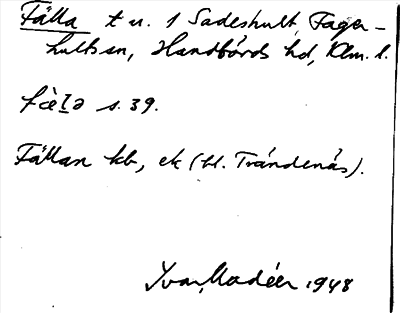 Fälla t u. 1 Sadeshult, Fager-
hults sn, Handbörds hd, Klm. l.
fœ̀l̲ə s. 39.
Fällan kb, ek (hl. Trändenäs).
Yvar Modéer 1948